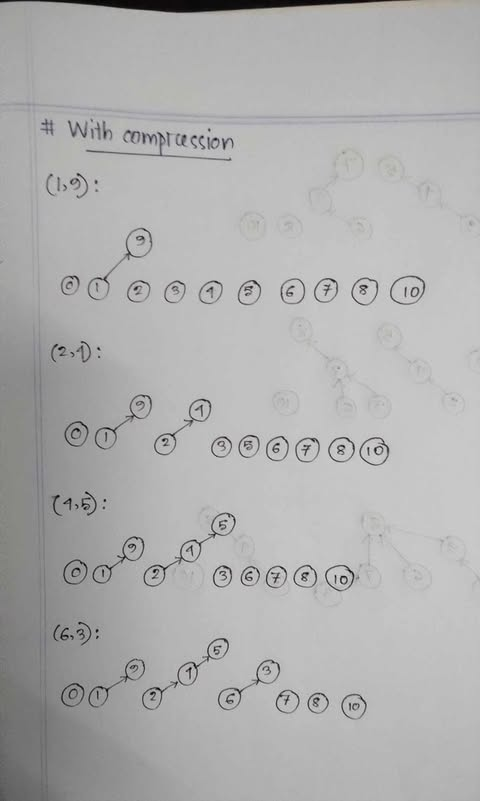 # With comprcession
(1,9):
9
0 1 2 3 4 5 6 7 8 10
(2,4):
9 4
0 1 2 3 5 6 7 8 10
(4,5):
5
9 4
0 1 2 3 6 7 8 10
(6,3):
5
9 4 3
0 1 2 6 7 8 10